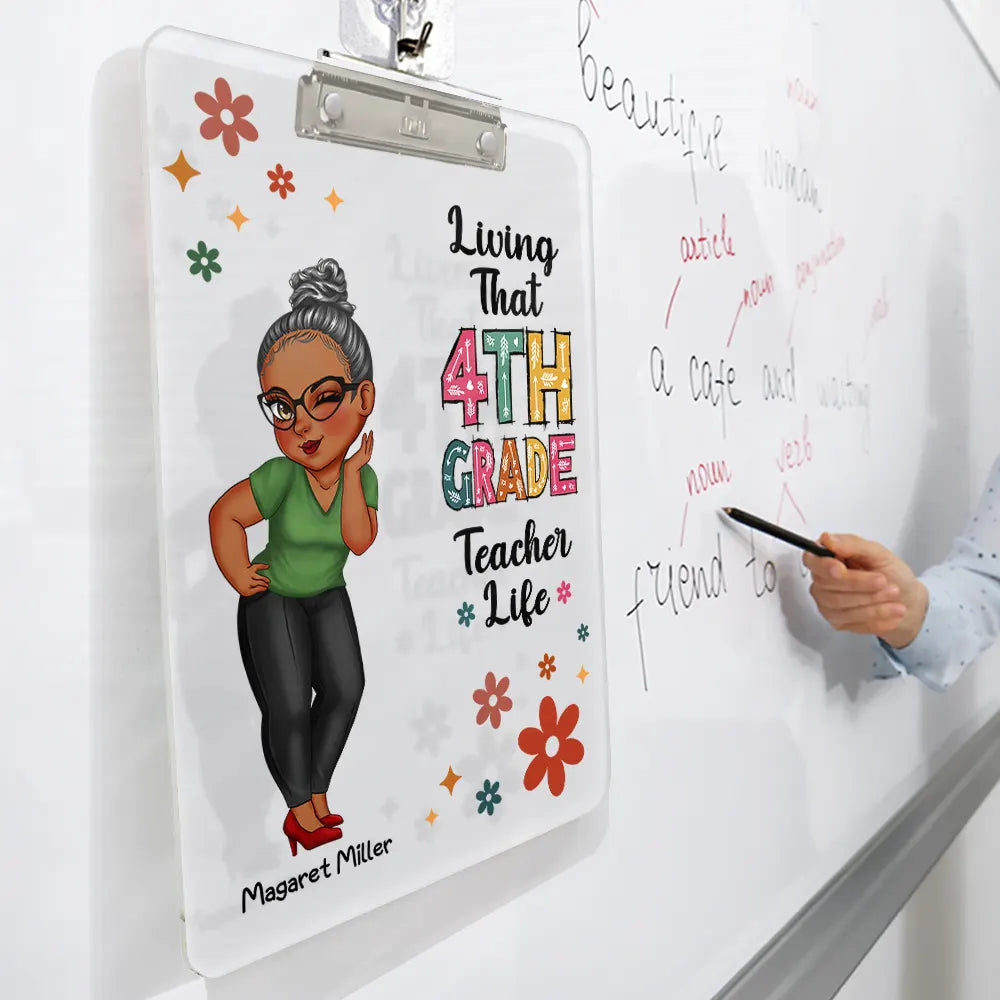 Living
That
4TH
GRADE
Teacher
Life
Magaret Miller
beautiful
noun
woman
article
noun
conjunction
a cafe and waiting
noun
verb
friend to